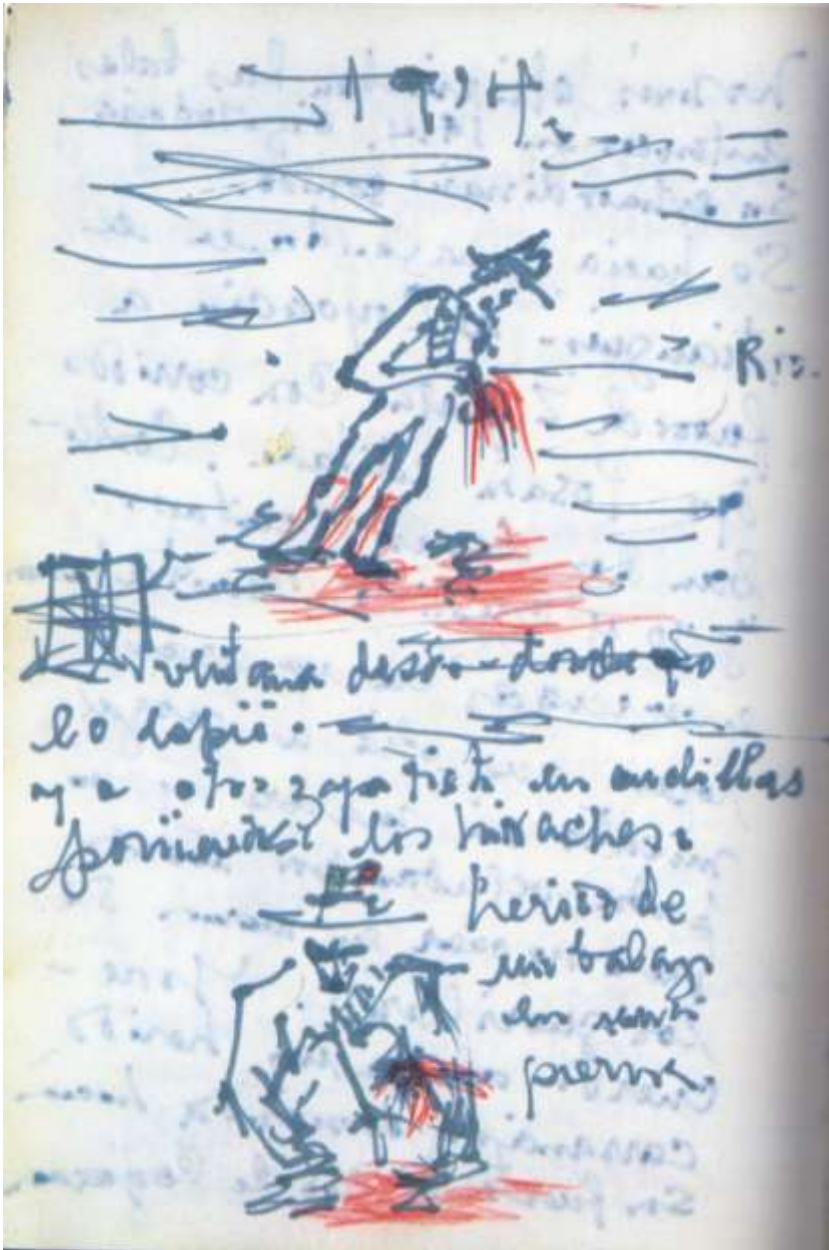 1914.
Rio.
ventana desde donde yo
lo espié.
y a otro zapatista en cuclillas
poniendose los huaraches.
herido de
un balazo
en una
pierna.